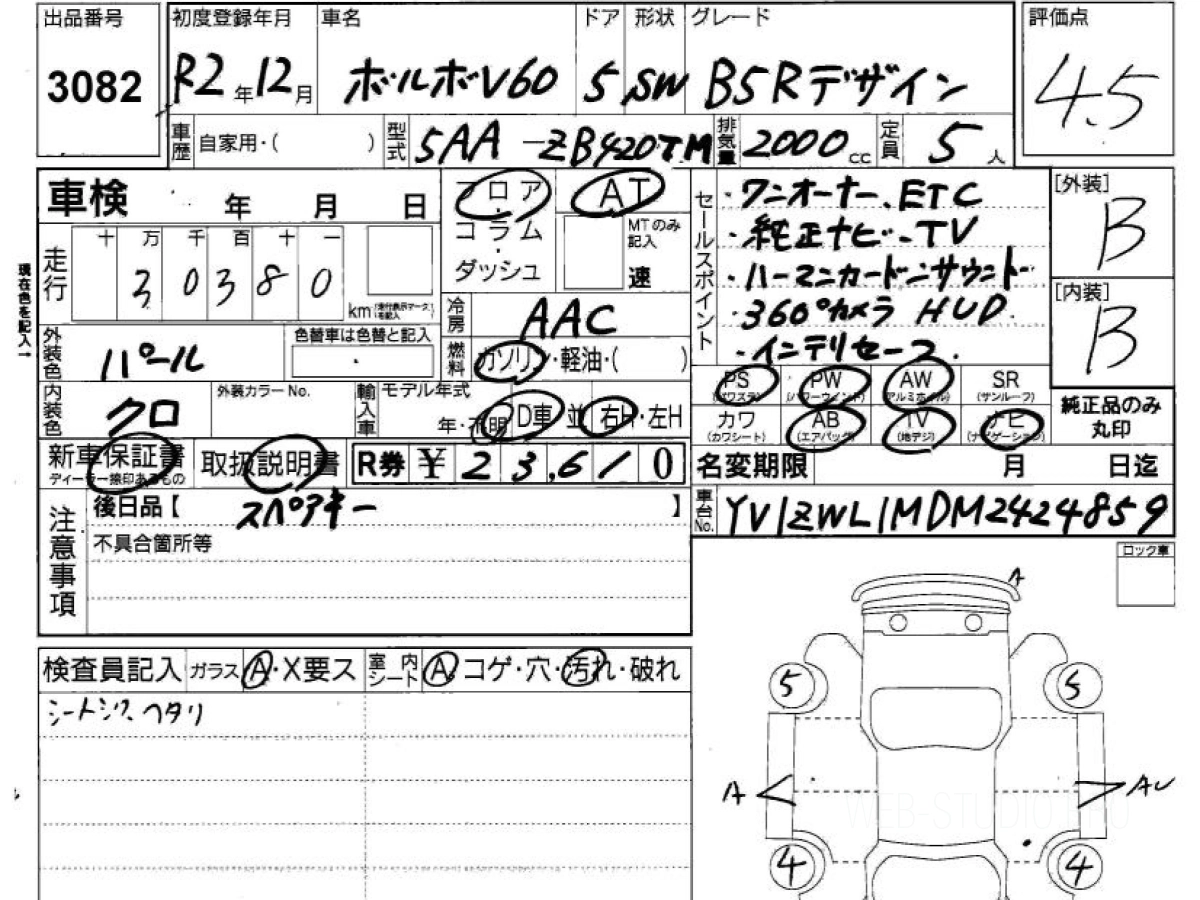 出品番号 3082
初度登録年月 R2年12月
車名 ボルボV60
ドア 5
形状 SW
グレード B5 Rデザイン
評価点 4.5
車歴 自家用・( )
型式 5AA-ZB420TM
排気量 2000cc
定員 5人
車検 年 月 日
フロア・コラム・ダッシュ
AT
MTのみ記入 速
セールスポイント
・ワンオーナー、ETC
・純正ナビ-TV
・ハーマンカードンサウンド
・360°カメラ HUD
・インテリセーフ.
[外装] B
[内装] B
現在色を記入→
走行 十 万 千 百 十 一
30380 km
冷房 AAC
外装色 パール
色替車は色替と記入
燃料 ガソリン・軽油・( )
PS (パワステ) PW (パワーウインド) AW (アルミホイル) SR (サンルーフ)
カワ (カワシート) AB (エアバッグ) TV (地デジ) ナビ (ナビゲーション)
純正品のみ丸印
内装色 クロ
外装カラーNo.
輸入車 モデル年式 年・不明 D車 並 右H・左H
新車保証書
ディーラー捺印あるもの
取扱説明書
R券 ¥23,610
名変期限 月 日迄
車台No. YV1ZWL1MDM2424859
注意事項
後日品【 スペアキー 】
不具合箇所等
ロック車
検査員記入 ガラス A・X要ス 室内シート A コゲ・穴・汚れ・破れ
シートシワ、ヘタリ
A
5 5
A AU
WEB-STUDIO
4 4